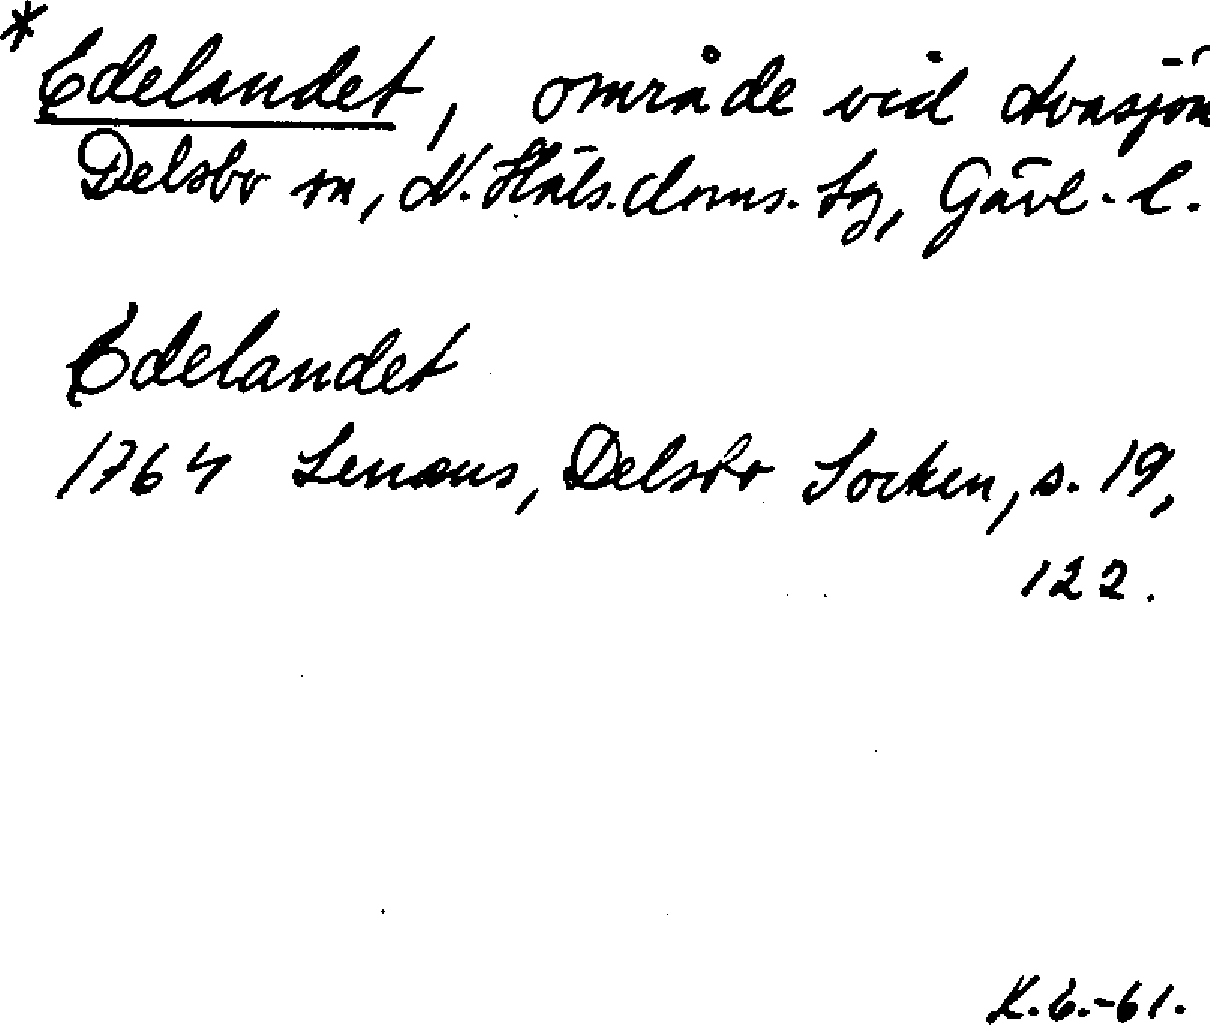 * Edelandet, område vid
Delsbo sn, N. Häls. doms. tg, Gävl. l.
Edelandet
1764 Lenæus, Delsbo Socken, s. 19,
122.
K.E.-61.